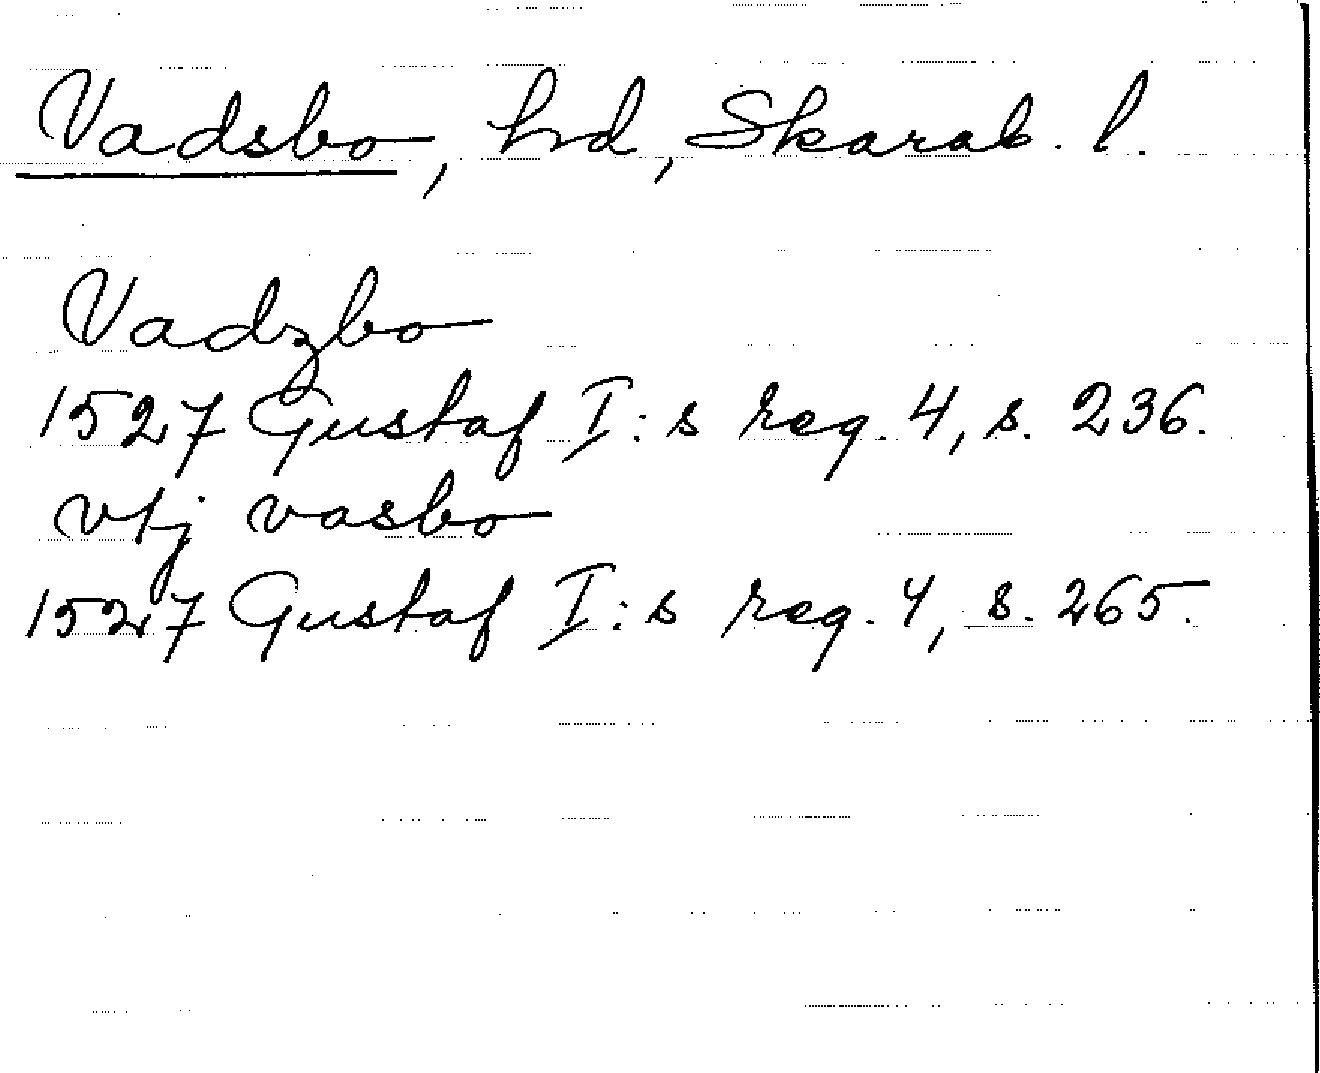 Vadsbo, hd, Skarab. l.
Vadzbo
1527 Gustaf I:s reg. 4, s. 236.
vtj vasbo
1527 Gustaf I:s reg. 4, s. 265.